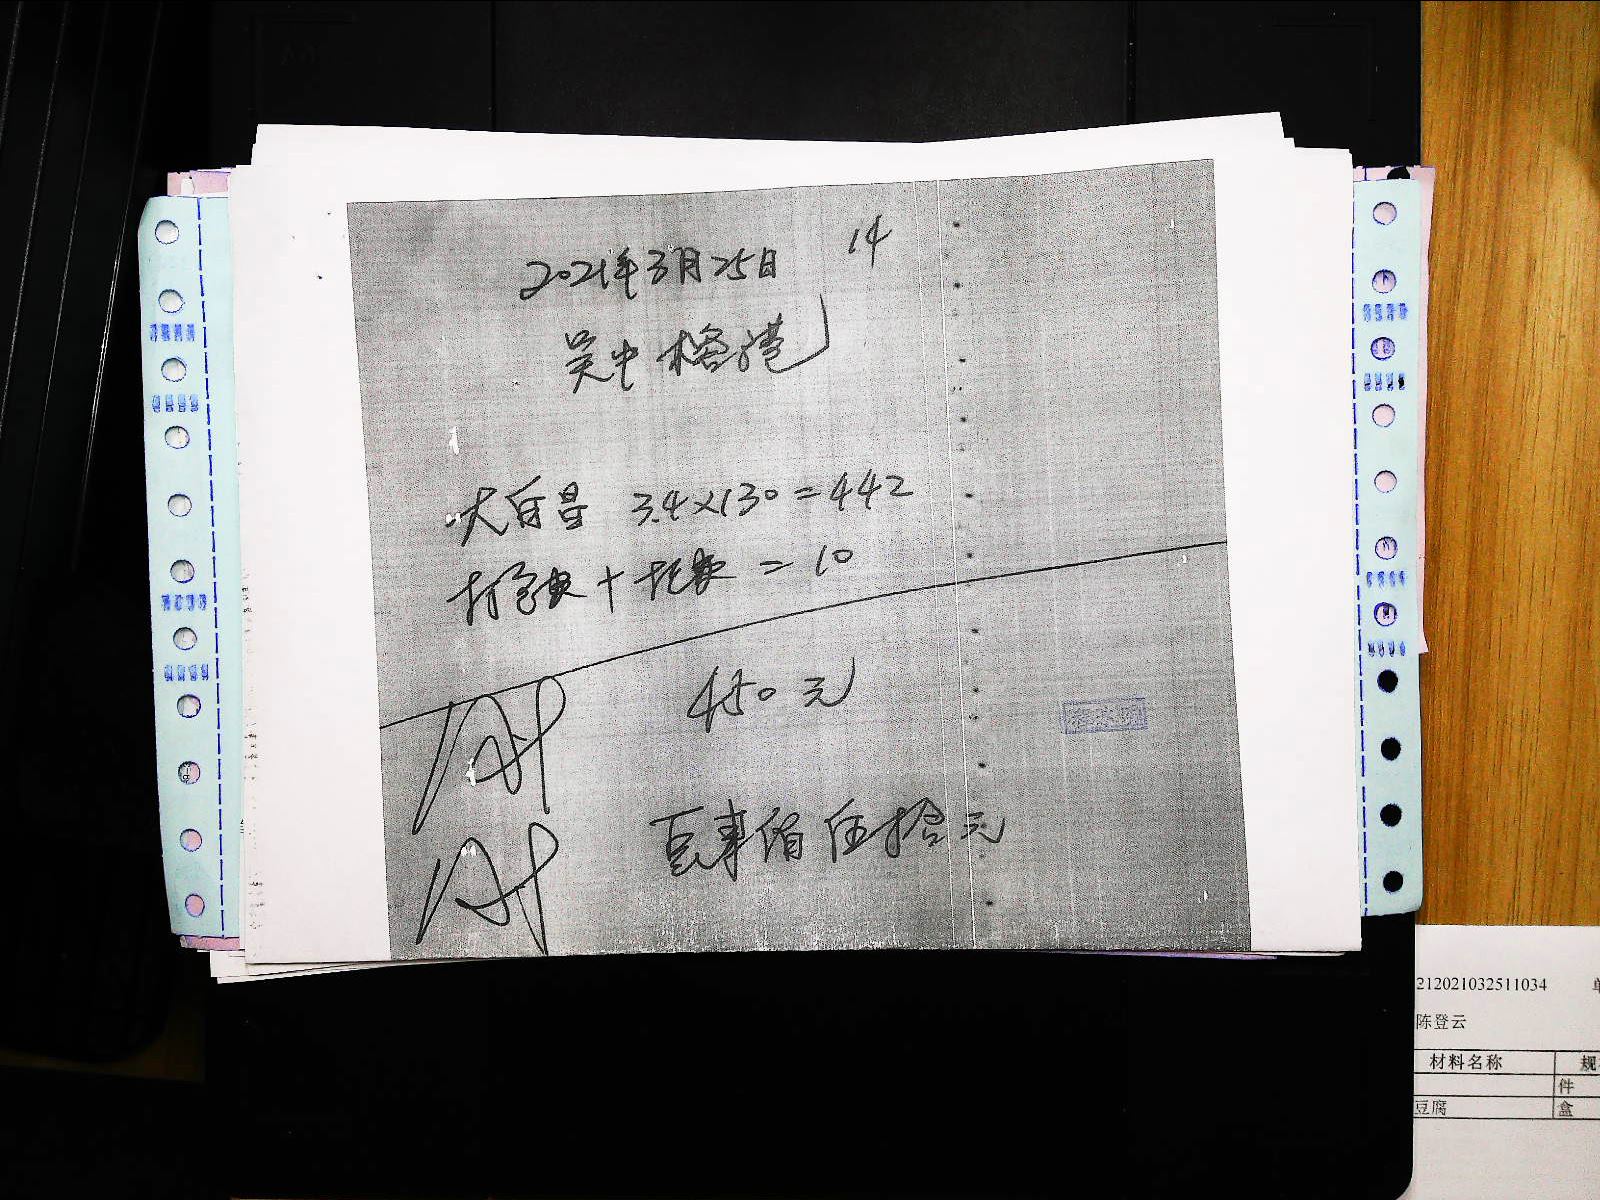 14
2021年3月25日
吴中 榕港
大白昌 3.4×130=442
打包费+托费 = 10
450元
肆佰伍拾元
212021032511034
陈登云
材料名称
件
豆腐
盒